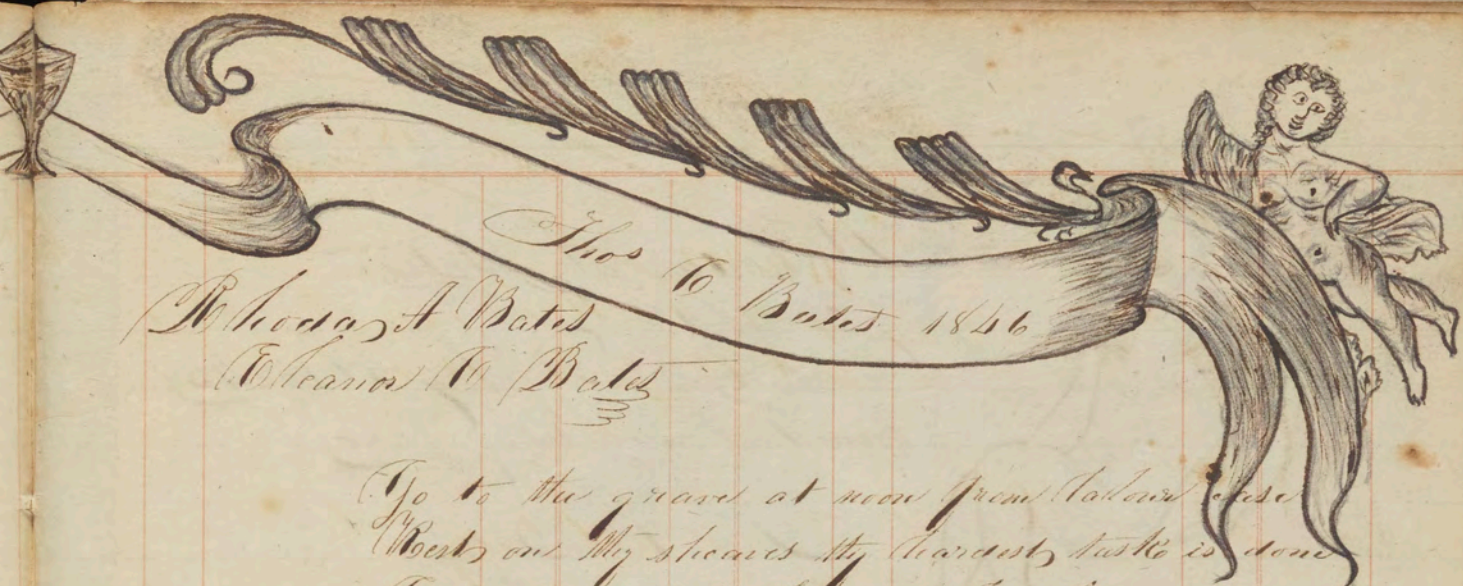 Thos C Bates 1846
Rhoda A Bates
Eleanor C Bates
Go to the grave at noon from labour ease
Rest on thy sheaves thy hardest task is done